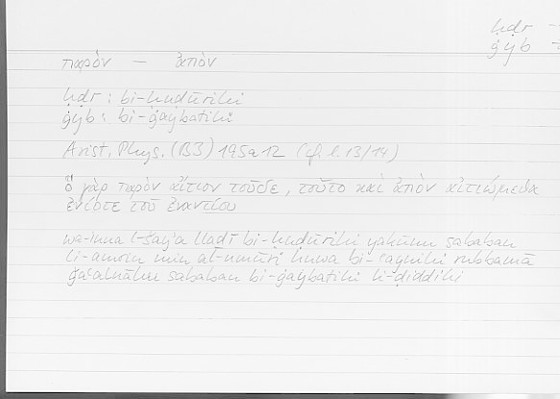 ḥḍr –
ġyb –
παρόν — ἀπόν
ḥḍr : bi-ḥuḍūrihi
ġyb : bi-ġaybatihi
Arist. Phys. (B3) 195a12 (cf. l. 13/14)
ὃ γὰρ παρὸν αἴτιον τοῦδε, τοῦτο καὶ ἀπὸν αἰτιώμεθα
ἐνίοτε τοῦ ἐναντίου
wa-inna l-šayʾa lladī bi-ḥuḍūrihi yakūnu sababan
li-amrin min al-umūri huwa bi-ʿaynihi rubbamā
ǧaʿalnāhu sababan bi-ġaybatihi li-ḍiddihi